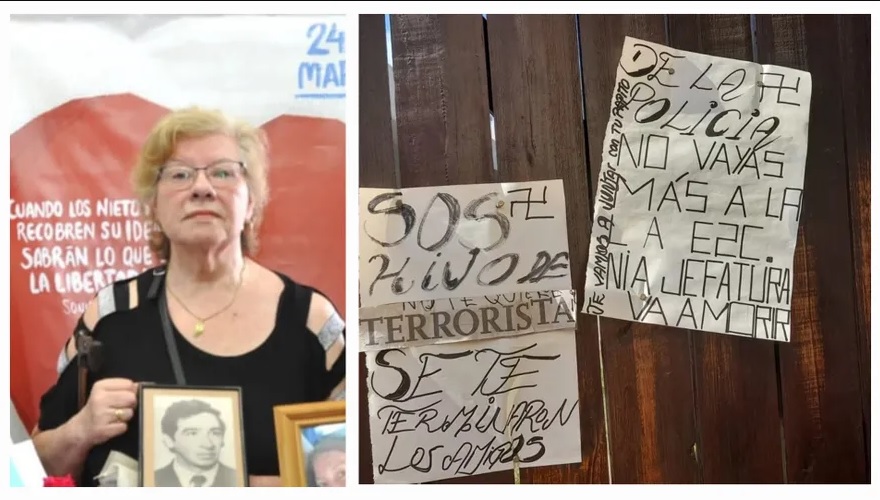 24
MAR
CUANDO LOS NIETO
RECOBREN SU IDE
SABRÁN LO QUE
LA LIBERTAD
SOS
HIJO DE
NO TE QUIERE
TERRORISTA
SE TE
TERMINARON
LOS AMIGOS
DE LA
POLICIA
NO VAYAS
MÁS A LA
NIA JEFATURA
VA A MORIR
TE VAMOS A JUNTAR con TU PAPITO